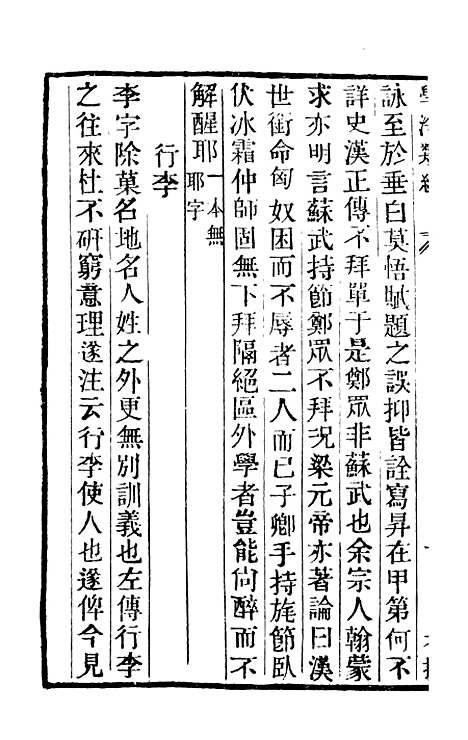 詠至於垂白莫悟賦題之誤抑皆詮寫昇在甲第何不
詳史漢正傳不拜單于是鄭眾非蘇武也余宗人翰蒙
求亦明言蘇武持節鄭眾不拜況梁元帝亦著論曰漢
世銜命匈奴困而不辱者二人而已子卿手持旄節臥
伏冰霜仲師固無下拜隔絕區外學者豈能尙醉而不
解醒耶一本無耶字
行李
李字除菓名地名人姓之外更無別訓義也左傳行李
之往來杜不研窮意理遂注云行李使人也遂俾今見